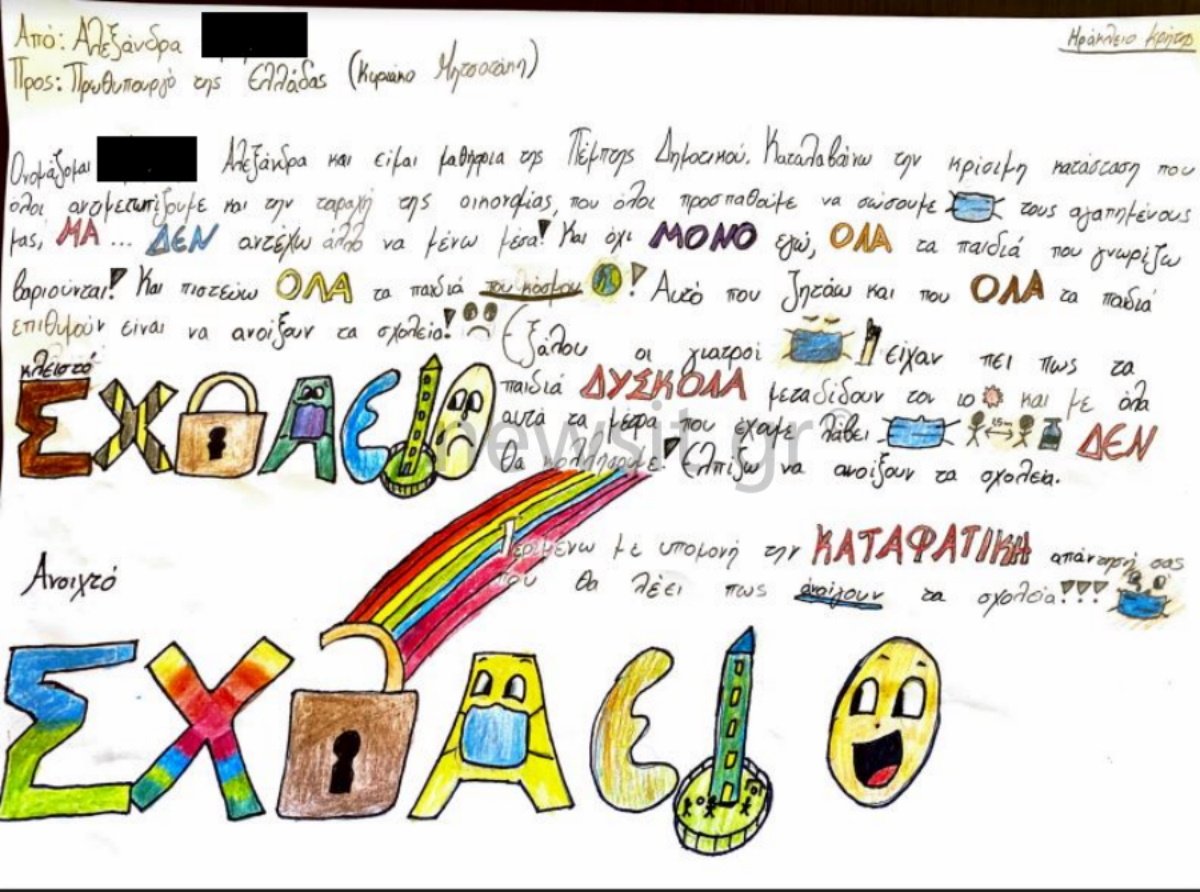 Από: Αλεξάνδρα
Ηράκλειο Κρήτης
Προς: Πρωθυπουργό της Ελλάδας (Κυριάκο Μητσοτάκη)
Ονομάζομαι Αλεξάνδρα και είμαι μαθήτρια της Πέμπτης Δημοτικού. Καταλαβαίνω την κρίσιμη κατάσταση που
όλοι αντιμετωπίζουμε και την ταραχή της οικονομίας, που όλοι προσπαθούμε να σώσουμε τους αγαπημένους
μας, ΜΑ... ΔΕΝ αντέχω άλλο να μένω μέσα! Και όχι ΜΟΝΟ εγώ, ΟΛΑ τα παιδιά που γνωρίζω
βαριούνται! Και πιστεύω ΟΛΑ τα παιδιά του κόσμου! Αυτό που ζητάω και που ΟΛΑ τα παιδιά
επιθυμούν είναι να ανοίξουν τα σχολεία! Εξάλου οι γιατροί είχαν πει πως τα
παιδιά ΔΥΣΚΟΛΑ μεταδίδουν τον ιο και με όλα
αυτά τα μέτρα που έχουμε λάβει 1,5m ΔΕΝ
θα κολλήσουμε! Ελπίζω να ανοίξουν τα σχολεία.
κλειστό
ΣΧΟΛΕΙΟ
newsit.gr
Περιμένω με υπομονή την ΚΑΤΑΦΑΤΙΚΗ απάντησή σας
που θα λέει πως ανοίγουν τα σχολεία!!!
Ανοιχτό
ΣΧΟΛΕΙΟ